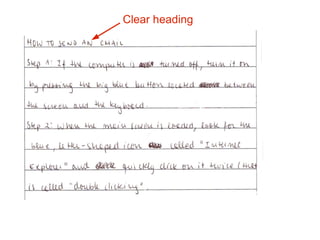 Clear heading
HOW TO SEND AN EMAIL
Step 1: If the computer is turned off, turn it on
by pressing the big blue button located between
the screen and the keyboard.
Step 2: When the main screen is loaded, look for the
blue, letter-shaped icon called "Internet
Explorer" and quickly click on it twice (this
is called "double clicking".